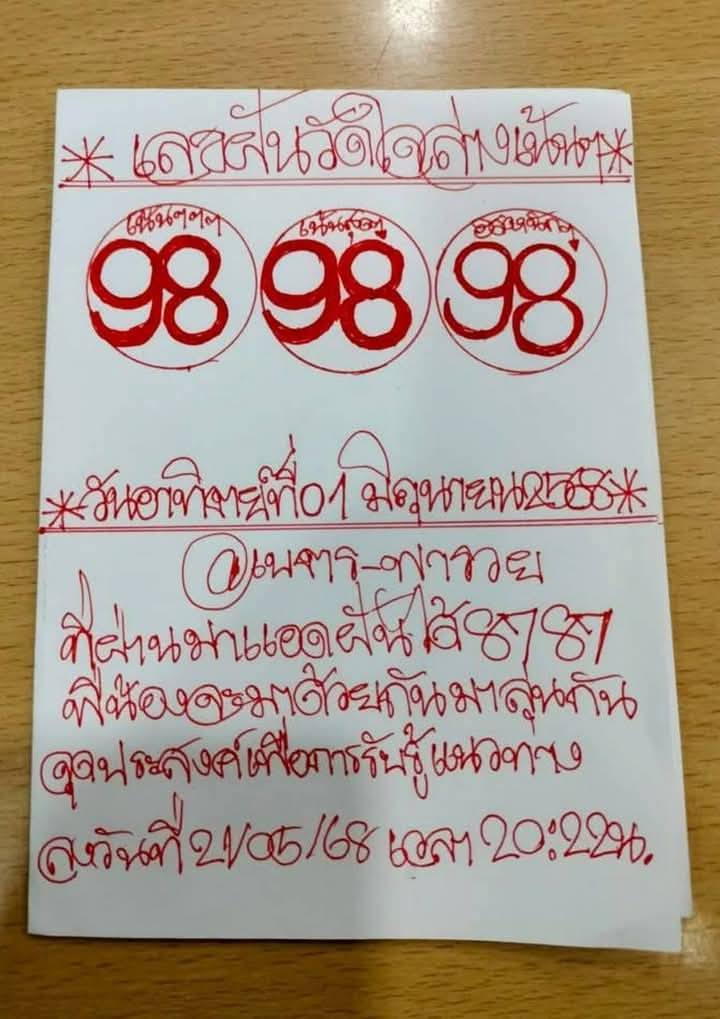 * เลขฝันวัดใจล่างเน้นๆ *
เน้นๆๆๆ เน้นสุดๆ
98 98 98
* วันอาทิตย์ที่ 01 มิถุนายน 2568 *
@เนตร-พารวย
ที่ผ่านมาแอดฝันได้ 87 87
พี่น้องจะมาด้วยกันมาลุ้นกัน
จุดประสงค์เพื่อการรับรู้แนวทาง
ลงวันที่ 21/05/68 เวลา 20:22น.